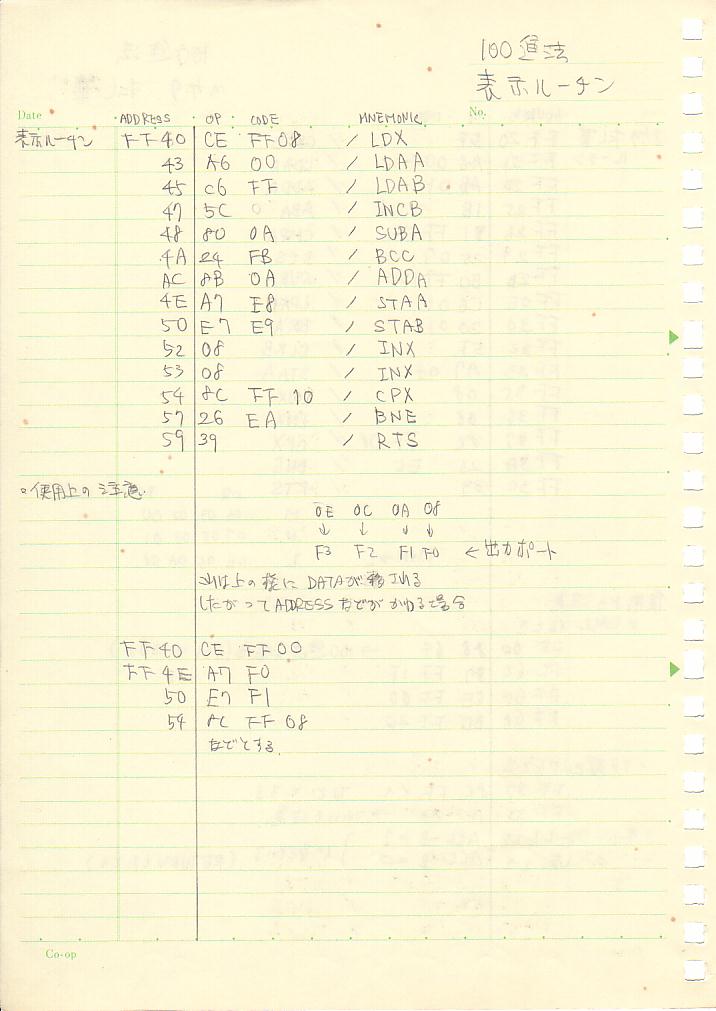 100進法
表示ルーチン
Date ADDRESS OP CODE MNEMONIC No.
表示ルーチン FF40 CE FF08 / LDX
43 A6 00 / LDAA
45 C6 FF / LDAB
47 5C 0 / INCB
48 80 0A / SUBA
4A 24 FB / BCC
AC 8B 0A / ADDA
4E A7 E8 / STAA
50 E7 E9 / STAB
52 08 / INX
53 08 / INX
54 8C FF 10 / CPX
57 26 EA / BNE
59 39 / RTS
○使用上の注意
0E 0C 0A 08
↓ ↓ ↓ ↓
F3 F2 F1 F0 ←出力ポート
上の様に DATAが移される
したがってADDRESSなどがかわる場合
FF40 CE FF00
FF4E A7 F0
50 E7 F1
54 AC FF 08
などとする.
Co-op